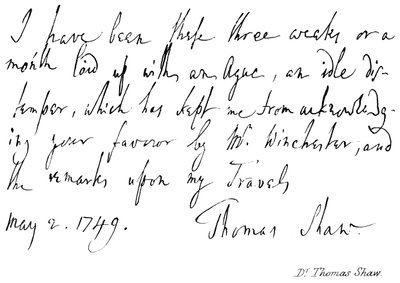 I have been these three weeks or a
month laid up with an Ague, an idle dis-
temper, which has kept me from acknowledg-
ing your favour by Mr. Winchester, and
the remarks upon my Travels
May 2. 1749. Thomas Shaw.
Dr. Thomas Shaw.